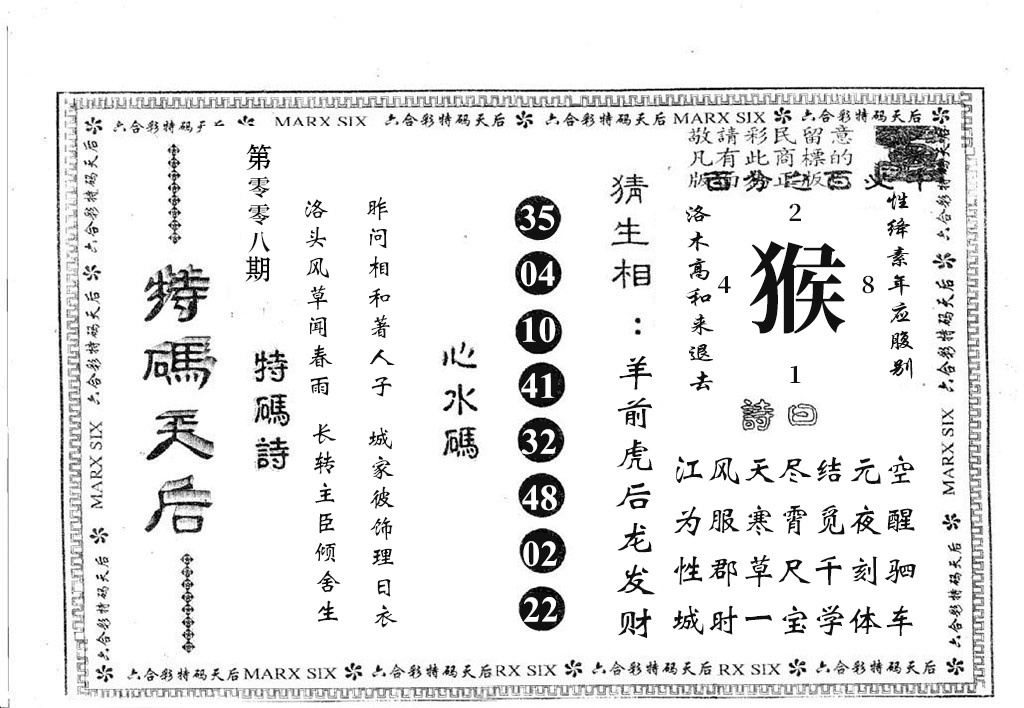 六合彩特码天后
MARX SIX
六合彩特码天后
六合彩特码天后
MARX SIX
六合彩特码天后
敬請彩民留意
凡有此商標的
版面为正版
性绛素年应腹别
洛木高和来退去
2
4
猴
8
1
詩曰
空醒驷车
元夜刻体
结觅千学
尽霄尺宝
天寒草一
风服郡时
江为性城
猜生相：羊前虎后龙发财
35
04
10
41
32
48
02
22
心水碼
昨问相和著人子 城家彼饰理日衣
洛头风草闻春雨 长转主臣倾舍生
特碼詩
第零零八期
特碼天后
六合彩特码天后
六合彩特码天后
MARX SIX
六合彩特码天后
六合彩特码天后
六合彩特码天后
MARX SIX
六合彩特码天后
六合彩特码天后
MARX SIX
六合彩特码天后
RX SIX
六合彩特码天后
RX SIX
六合彩特码天后